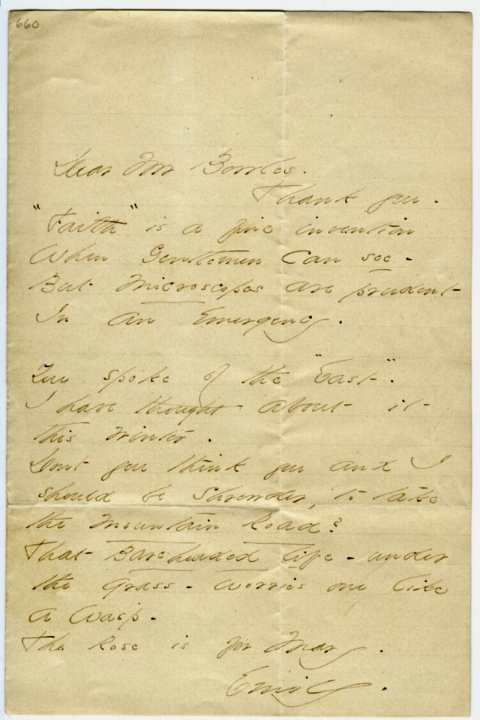 660
Dear Mr Bowles.
Thank you.
"Faith" is a fine invention
When Gentlemen can see -
But Microscopes are prudent
In an Emergency.
You spoke of the "East".
I have thought about it
this Winter.
Dont you think you and I
should be Shrewder, to take
the Mountain Road?
That Bareheaded life - under
the Grass - worries one like
a Wasp.
The Rose is for Mary.
Emily.